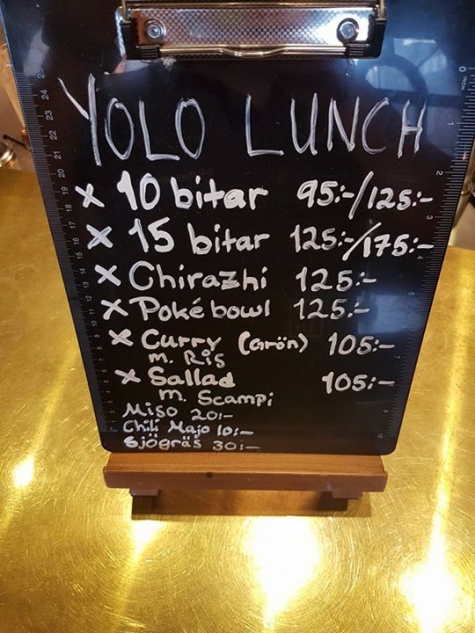 YOLO LUNCH
x 10 bitar 95:-/125:-
x 15 bitar 125:-/175:-
x Chirazhi 125:-
x Poké bowl 125:-
x Curry (Grön) 105:-
m. Ris
x Sallad 105:-
m. Scampi
Miso 20:-
Chili Majo 10:-
Sjögräs 30:-